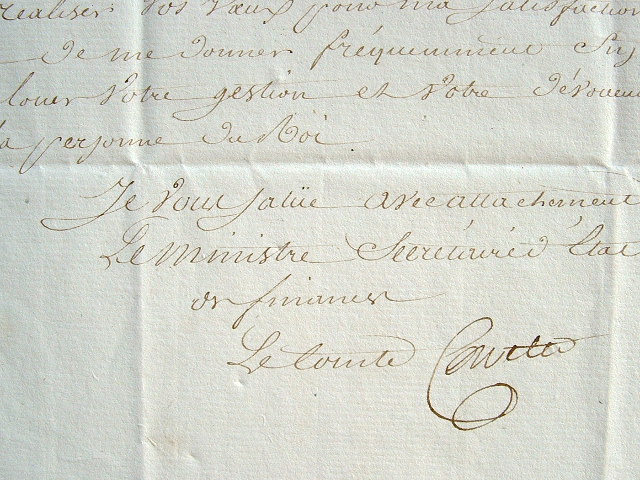 realiser vos vœux pour ma satisfaction
de me donner fréquemment Suj
louer Votre gestion et Votre dévouem
la personne du Roi
Je Vous salüe avec attachement
Le Ministre Secrétaire d'Etat
des finances
Le Comte Corvetto